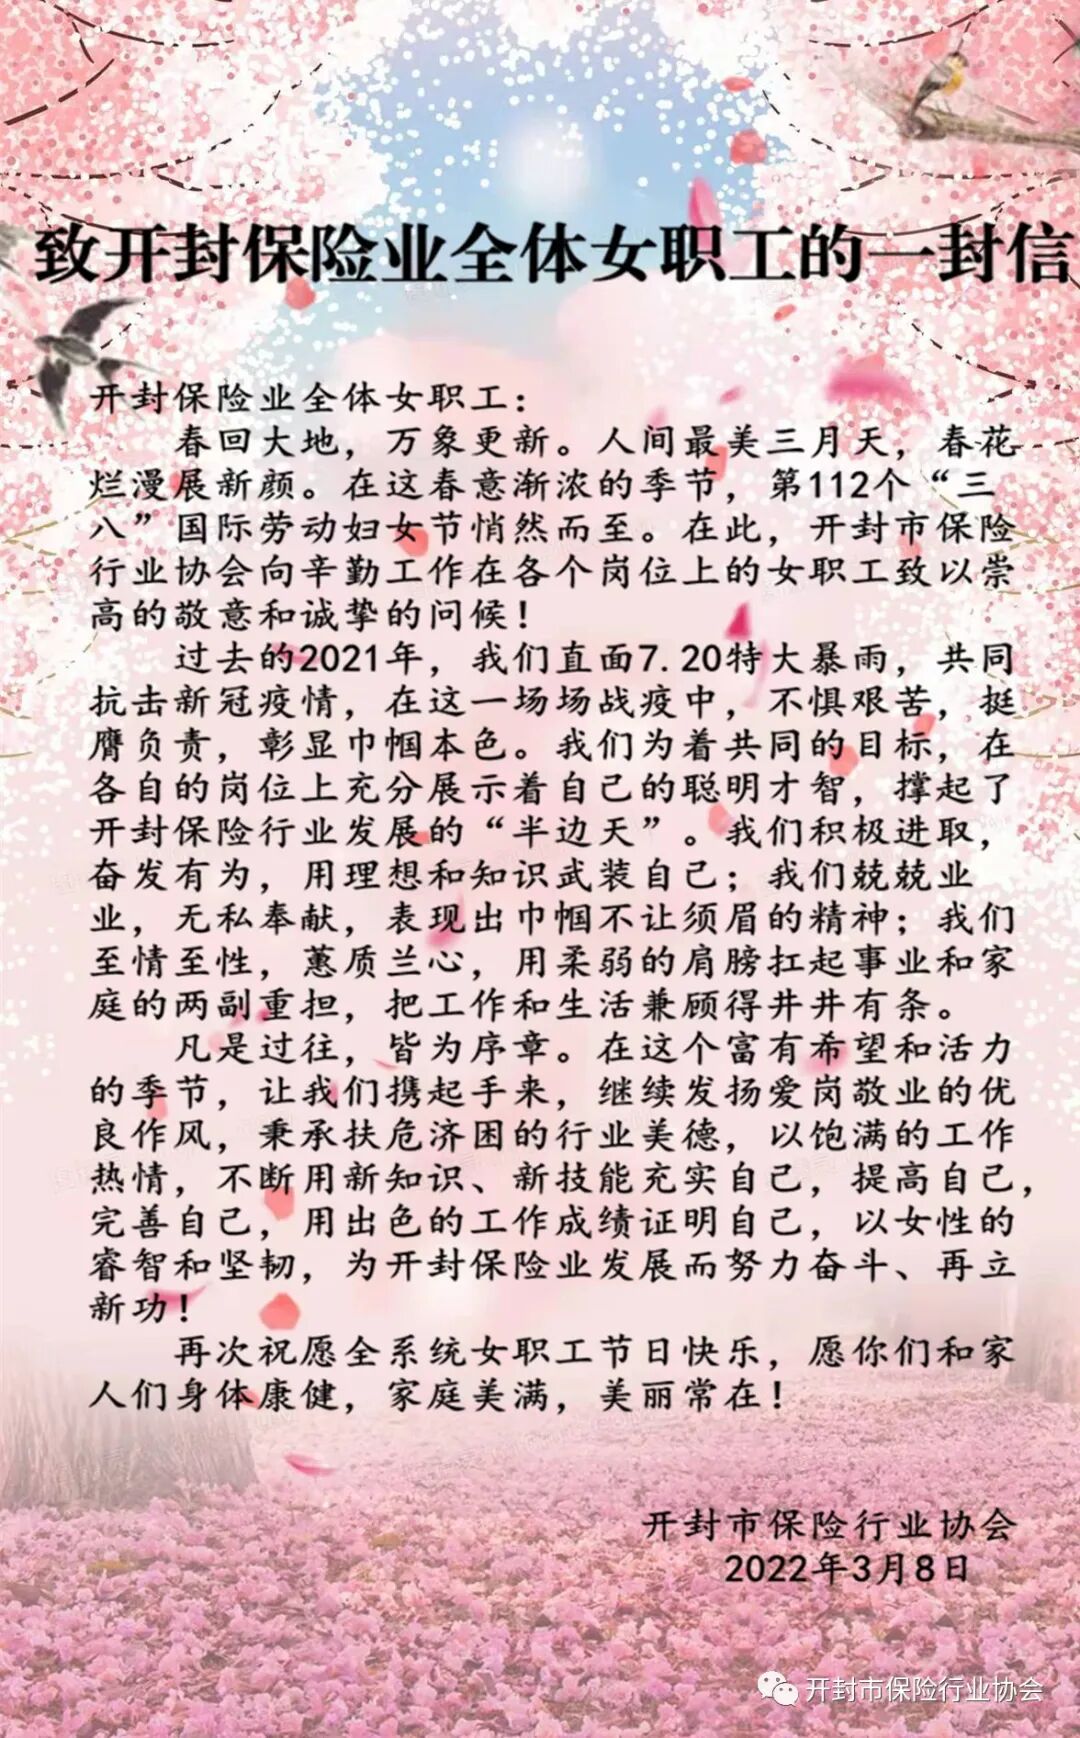 致开封保险业全体女职工的一封信
开封保险业全体女职工：
春回大地，万象更新。人间最美三月天，春花
烂漫展新颜。在这春意渐浓的季节，第112个“三
八”国际劳动妇女节悄然而至。在此，开封市保险
行业协会向辛勤工作在各个岗位上的女职工致以崇
高的敬意和诚挚的问候！
过去的2021年，我们直面7.20特大暴雨，共同
抗击新冠疫情，在这一场场战疫中，不惧艰苦，挺
膺负责，彰显巾帼本色。我们为着共同的目标，在
各自的岗位上充分展示着自己的聪明才智，撑起了
开封保险行业发展的“半边天”。我们积极进取，
奋发有为，用理想和知识武装自己；我们兢兢业
业，无私奉献，表现出巾帼不让须眉的精神；我们
至情至性，蕙质兰心，用柔弱的肩膀扛起事业和家
庭的两副重担，把工作和生活兼顾得井井有条。
凡是过往，皆为序章。在这个富有希望和活力
的季节，让我们携起手来，继续发扬爱岗敬业的优
良作风，秉承扶危济困的行业美德，以饱满的工作
热情，不断用新知识、新技能充实自己，提高自己，
完善自己，用出色的工作成绩证明自己，以女性的
睿智和坚韧，为开封保险业发展而努力奋斗、再立
新功！
再次祝愿全系统女职工节日快乐，愿你们和家
人们身体康健，家庭美满，美丽常在！
开封市保险行业协会
2022年3月8日
开封市保险行业协会